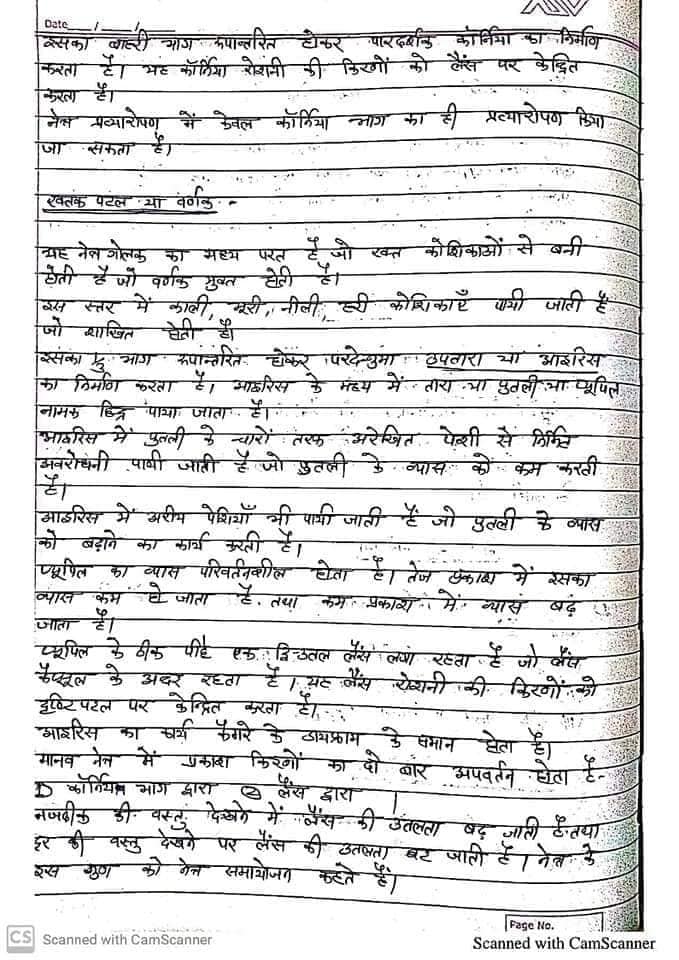 Date __/__/__
इसका बाहरी भाग रूपान्तरित होकर पारदर्शक कॉर्निया का निर्माण
करता है। यह कॉर्निया रोशनी की किरणों को लैंस पर केन्द्रित
करता है।
नेत्र प्रत्यारोपण में केवल कॉर्निया भाग का ही प्रत्यारोपण किया
जा सकता है।
रक्तक पटल या वर्णक :-
यह नेत्र गोलक का मध्य परत है जो रक्त कोशिकाओं से बनी
होती है जो वर्णक युक्त होती है।
इस स्तर में काली, भूरी, नीली, हरी कोशिकाएँ पायी जाती है
जो शाखित होती है।
इसका भाग रूपान्तरित होकर उपतारा या आइरिस
का निर्माण करता है। आइरिस के मध्य में तारा या पुतली या प्यूपिल
नामक छिद्र पाया जाता है।
आइरिस में पुतली के चारों तरफ अरेखित पेशी से निर्मित
अवरोधनी पायी जाती है जो पुतली के व्यास को कम करती
है।
आइरिस में अरीय पेशियाँ भी पायी जाती है जो पुतली के व्यास
को बढ़ाने का कार्य करती है।
प्यूपिल का व्यास परिवर्तनशील होता है। तेज प्रकाश में इसका
व्यास कम हो जाता है तथा कम प्रकाश में व्यास बढ़
जाता है।
प्यूपिल के ठीक पीछे एक द्विउतल लैंस लगा रहता है जो लैंस
कैप्सूल के अन्दर रहता है। यह लैंस रोशनी की किरणों को
दृष्टिपटल पर केन्द्रित करता है।
आइरिस का कार्य कैमरे के डायफ्राम के समान होता है।
मानव नेत्र में प्रकाश किरणों का दो बार अपवर्तन होता है-
① भाग द्वारा ② लैंस द्वारा ।
नजदीक की वस्तु देखने में लैंस की उतलता बढ़ जाती है तथा
दूर की वस्तु देखने पर लैंस की उतलता घट जाती है। नेत्र के
इस गुण को नेत्र समायोजन कहते हैं।
Page No.
CS Scanned with CamScanner
Scanned with CamScanner